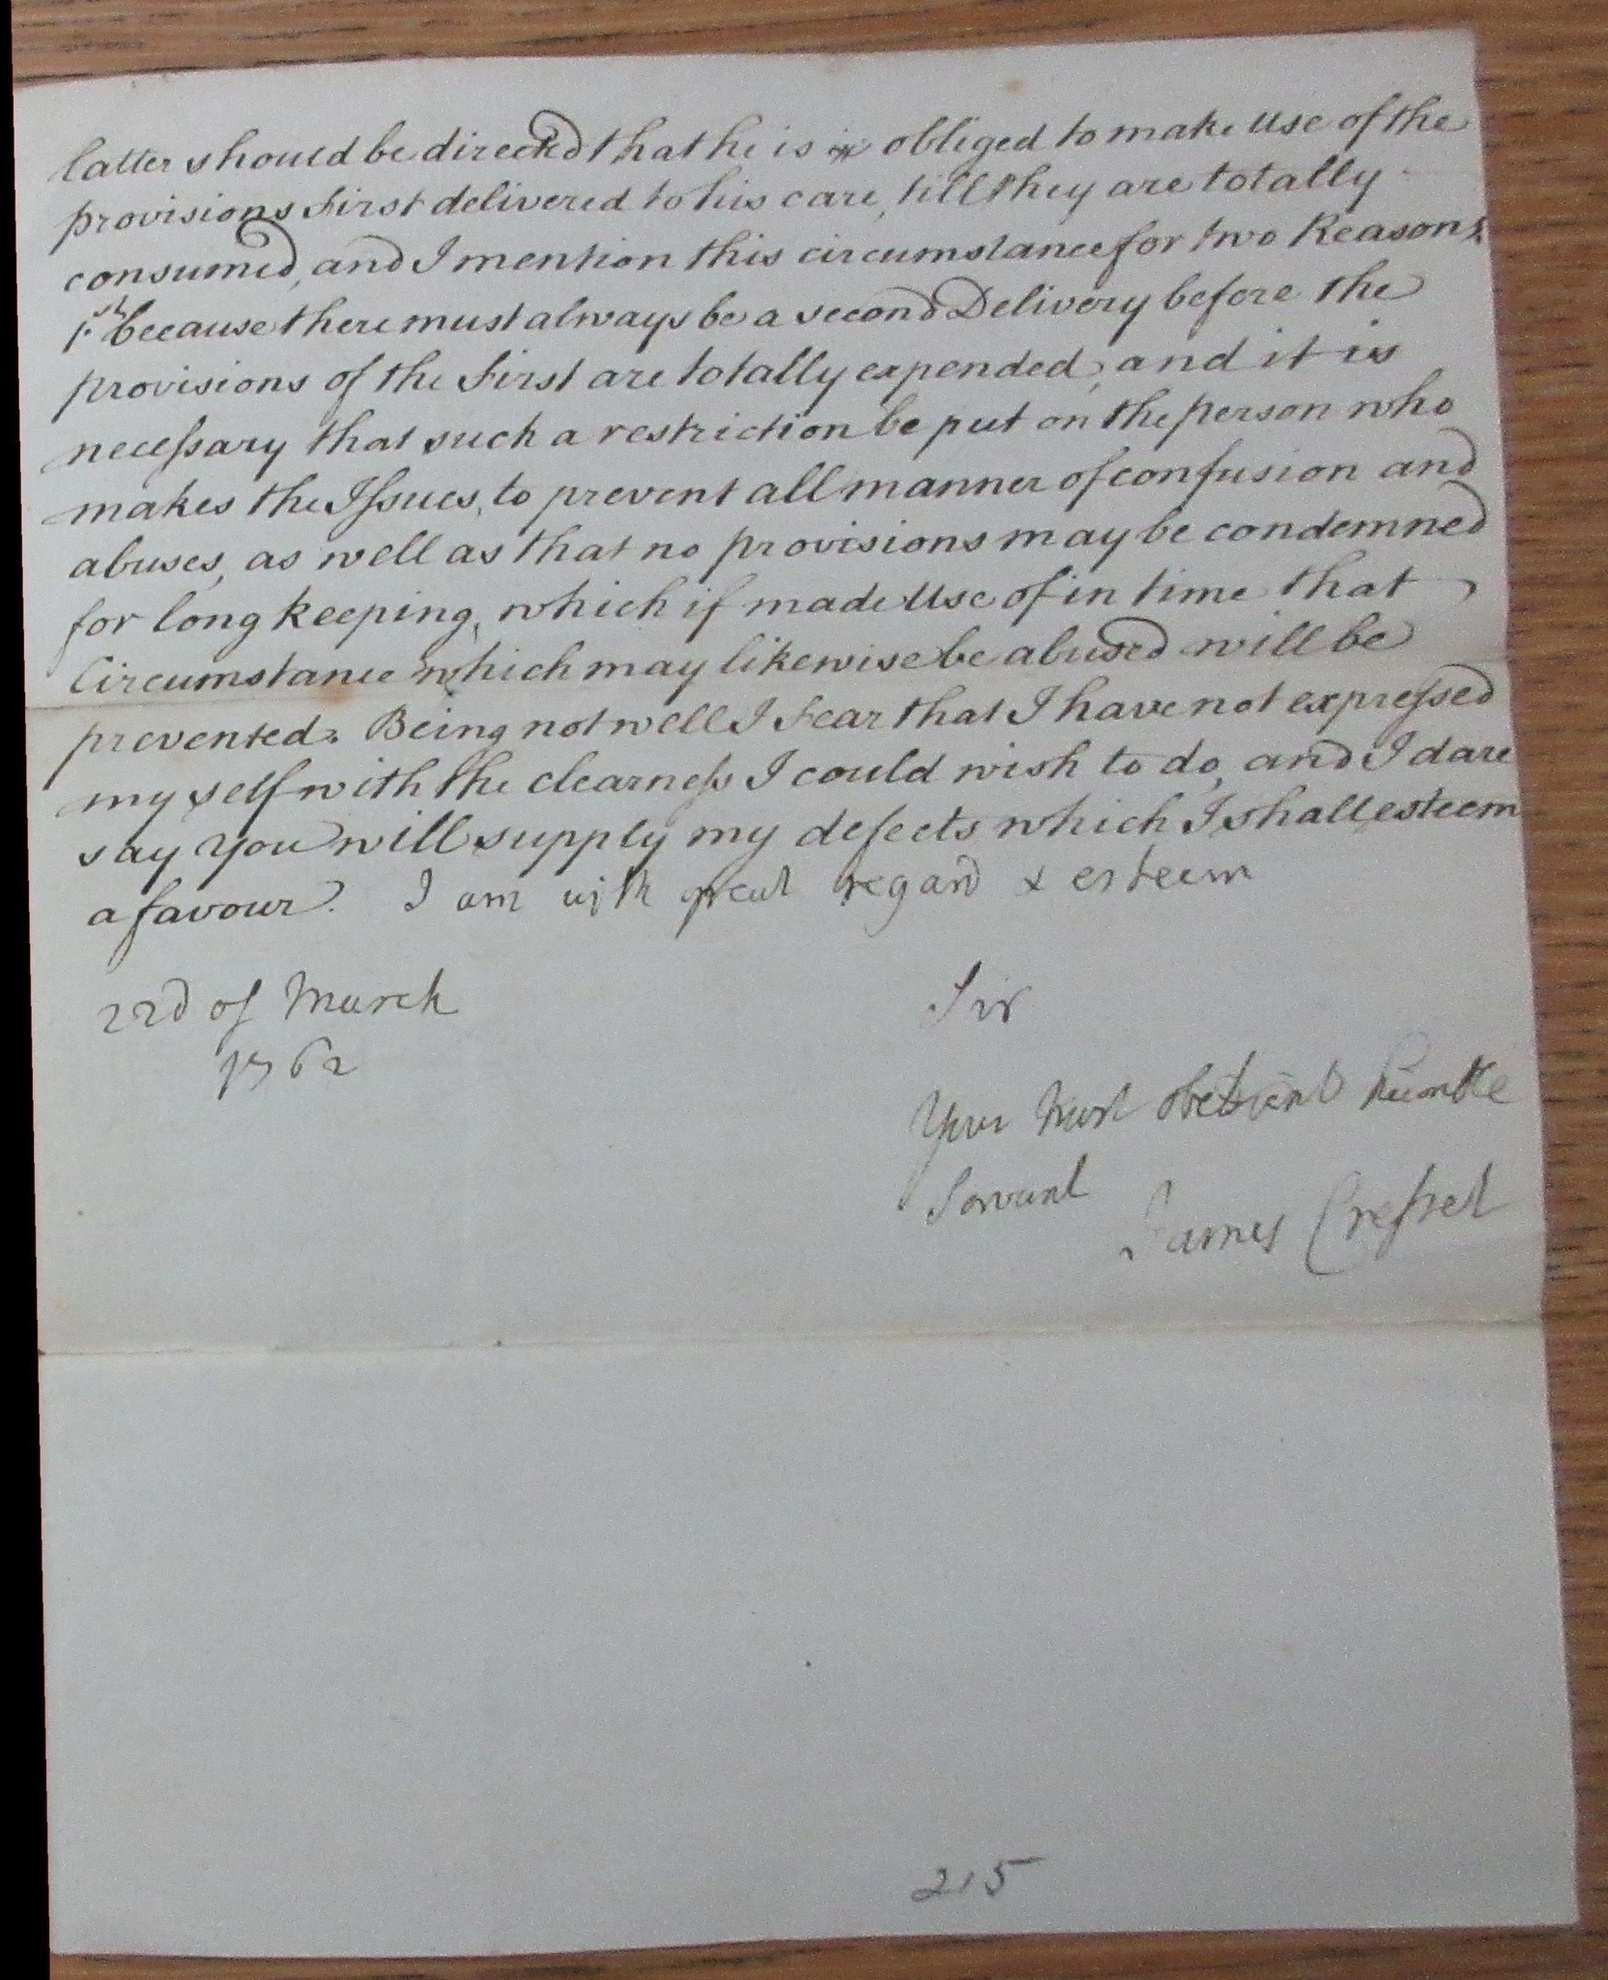 latter should be directed that he is obliged to make Use of the
provisions first delivered to his care, till they are totally
consumed, and I mention this circumstance for two Reasons
1.st because there must always be a second Delivery before the
provisions of the first are totally expended, and it is
necessary that such a restriction be put on the person who
makes the Issues, to prevent all manner of confusion and
abuses, as well as that no provisions may be condemned
for long keeping, which if made Use of in time that
Circumstance which may likewise be abused will be
prevented. Being not well I fear that I have not expressed
my self with the clearness I could wish to do, and I dare
say you will supply my defects which I shall esteem
a favour. I am with great regard & esteem
Sir
22d of March
1762
Your Most obedient humble
Servant
James Cresset
215